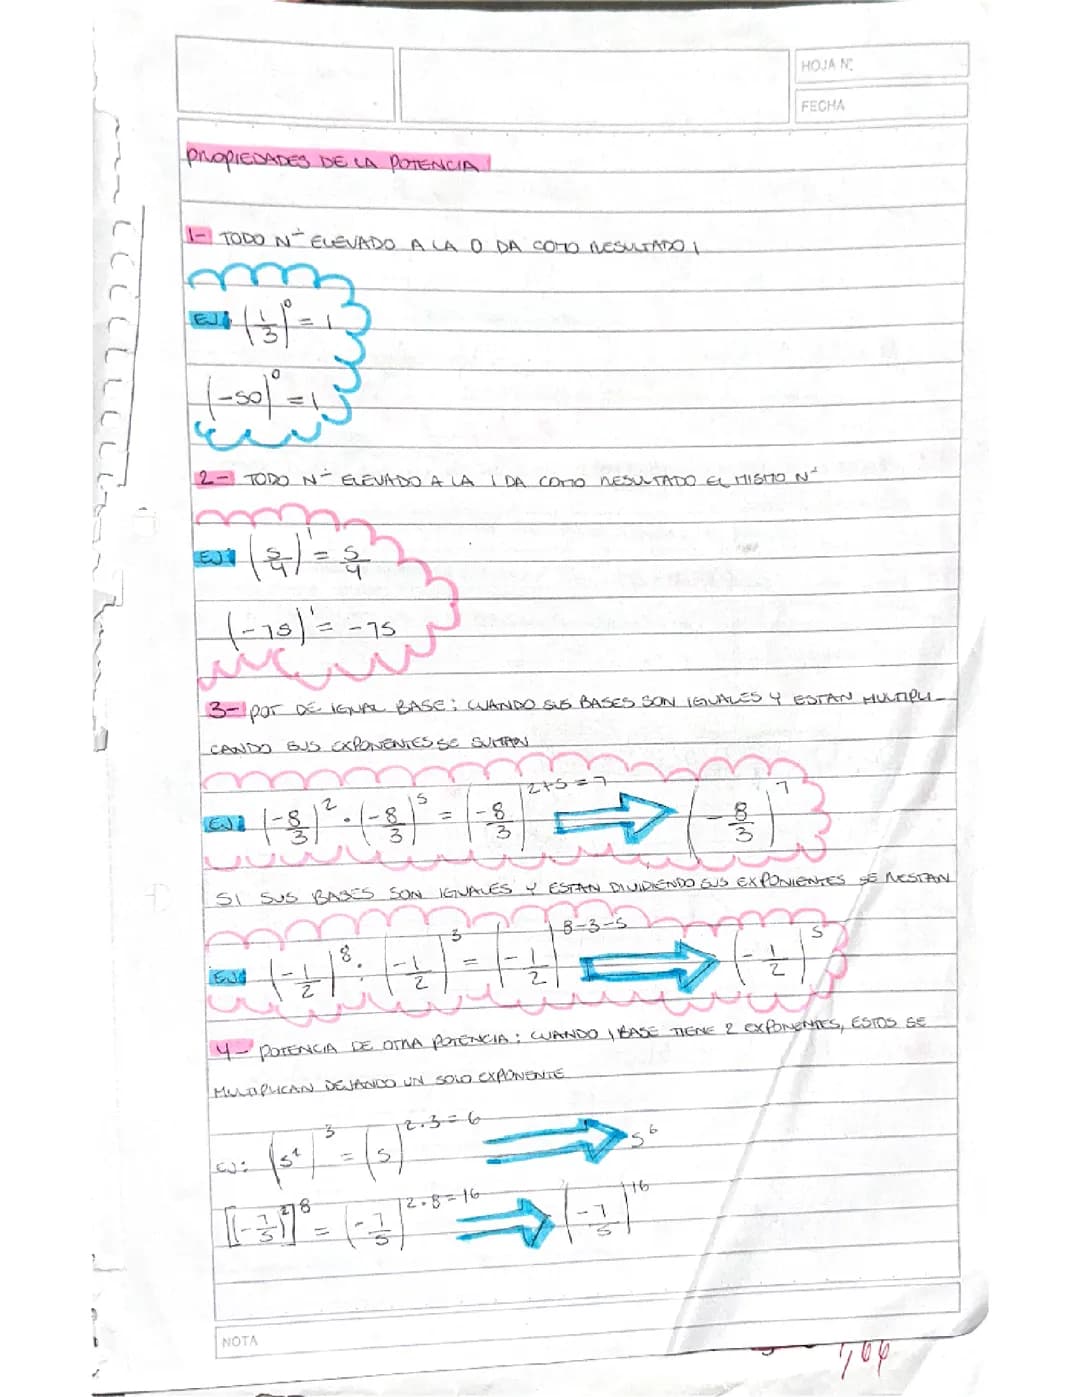 HOJA N°
FECHA
PROPIEDADES DE LA POTENCIA!
1- TODO N° ELEVADO A LA 0 DA COMO RESULTADO 1
EJ: (1/3)^0 = 1
(-50)^0 = 1
2- TODO N° ELEVADO A LA 1 DA COMO RESULTADO EL MISMO N°
EJ: (5/4)^1 = 5/4
(-75)^1 = -75
3- POT DE IGUAL BASE: CUANDO SUS BASES SON IGUALES Y ESTAN MULTIPLI-
CANDO SUS EXPONENTES SE SUMAN
EJ: (-8/3)^2 . (-8/3)^5 = (-8/3)^2+5=7 ⇒ (-8/3)^7
SI SUS BASES SON IGUALES Y ESTAN DIVIDIENDO SUS EXPONIENTES SE RESTAN
EJ: (-1/2)^8 : (-1/2)^3 = (-1/2)^8-3-5 ⇒ (-1/2)^5
4- POTENCIA DE OTRA POTENCIA: CUANDO 1 BASE TIENE 2 EXPONENTES, ESTOS SE
MULTIPLICAN DEJANDO UN SOLO EXPONENTE
EJ: (5^2)^3 = (5)^2.3=6 ⇒ 5^6
[(-7/5)^2]^8 = (-7/5)^2.8=16 ⇒ (-7/5)^16
NOTA